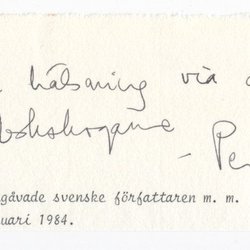 hälsning via
- Pe
gåvade svenske författaren m. m.
uari 1984.